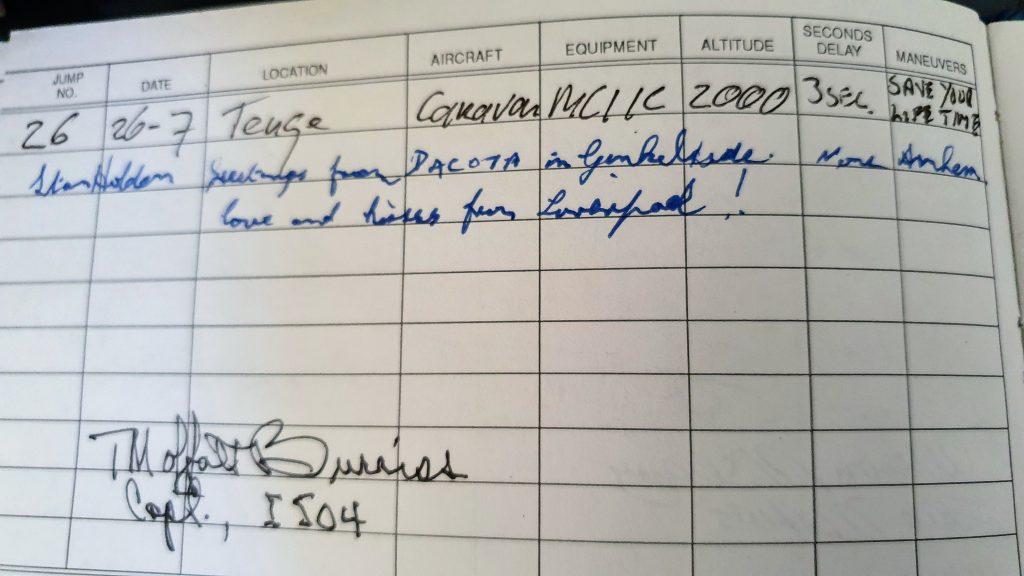 JUMP NO. DATE LOCATION AIRCRAFT EQUIPMENT ALTITUDE SECONDS DELAY MANEUVERS
26 26-7 Teuge Caravan MC11C 2000 3 SEC. SAVE YOUR LIFE TIME
Stan Holden Greetings from DACOTA in Ginkelheide. None Arnhem
love and kisses from Liverpool !
T Moffatt Burriss
Capt., I 504